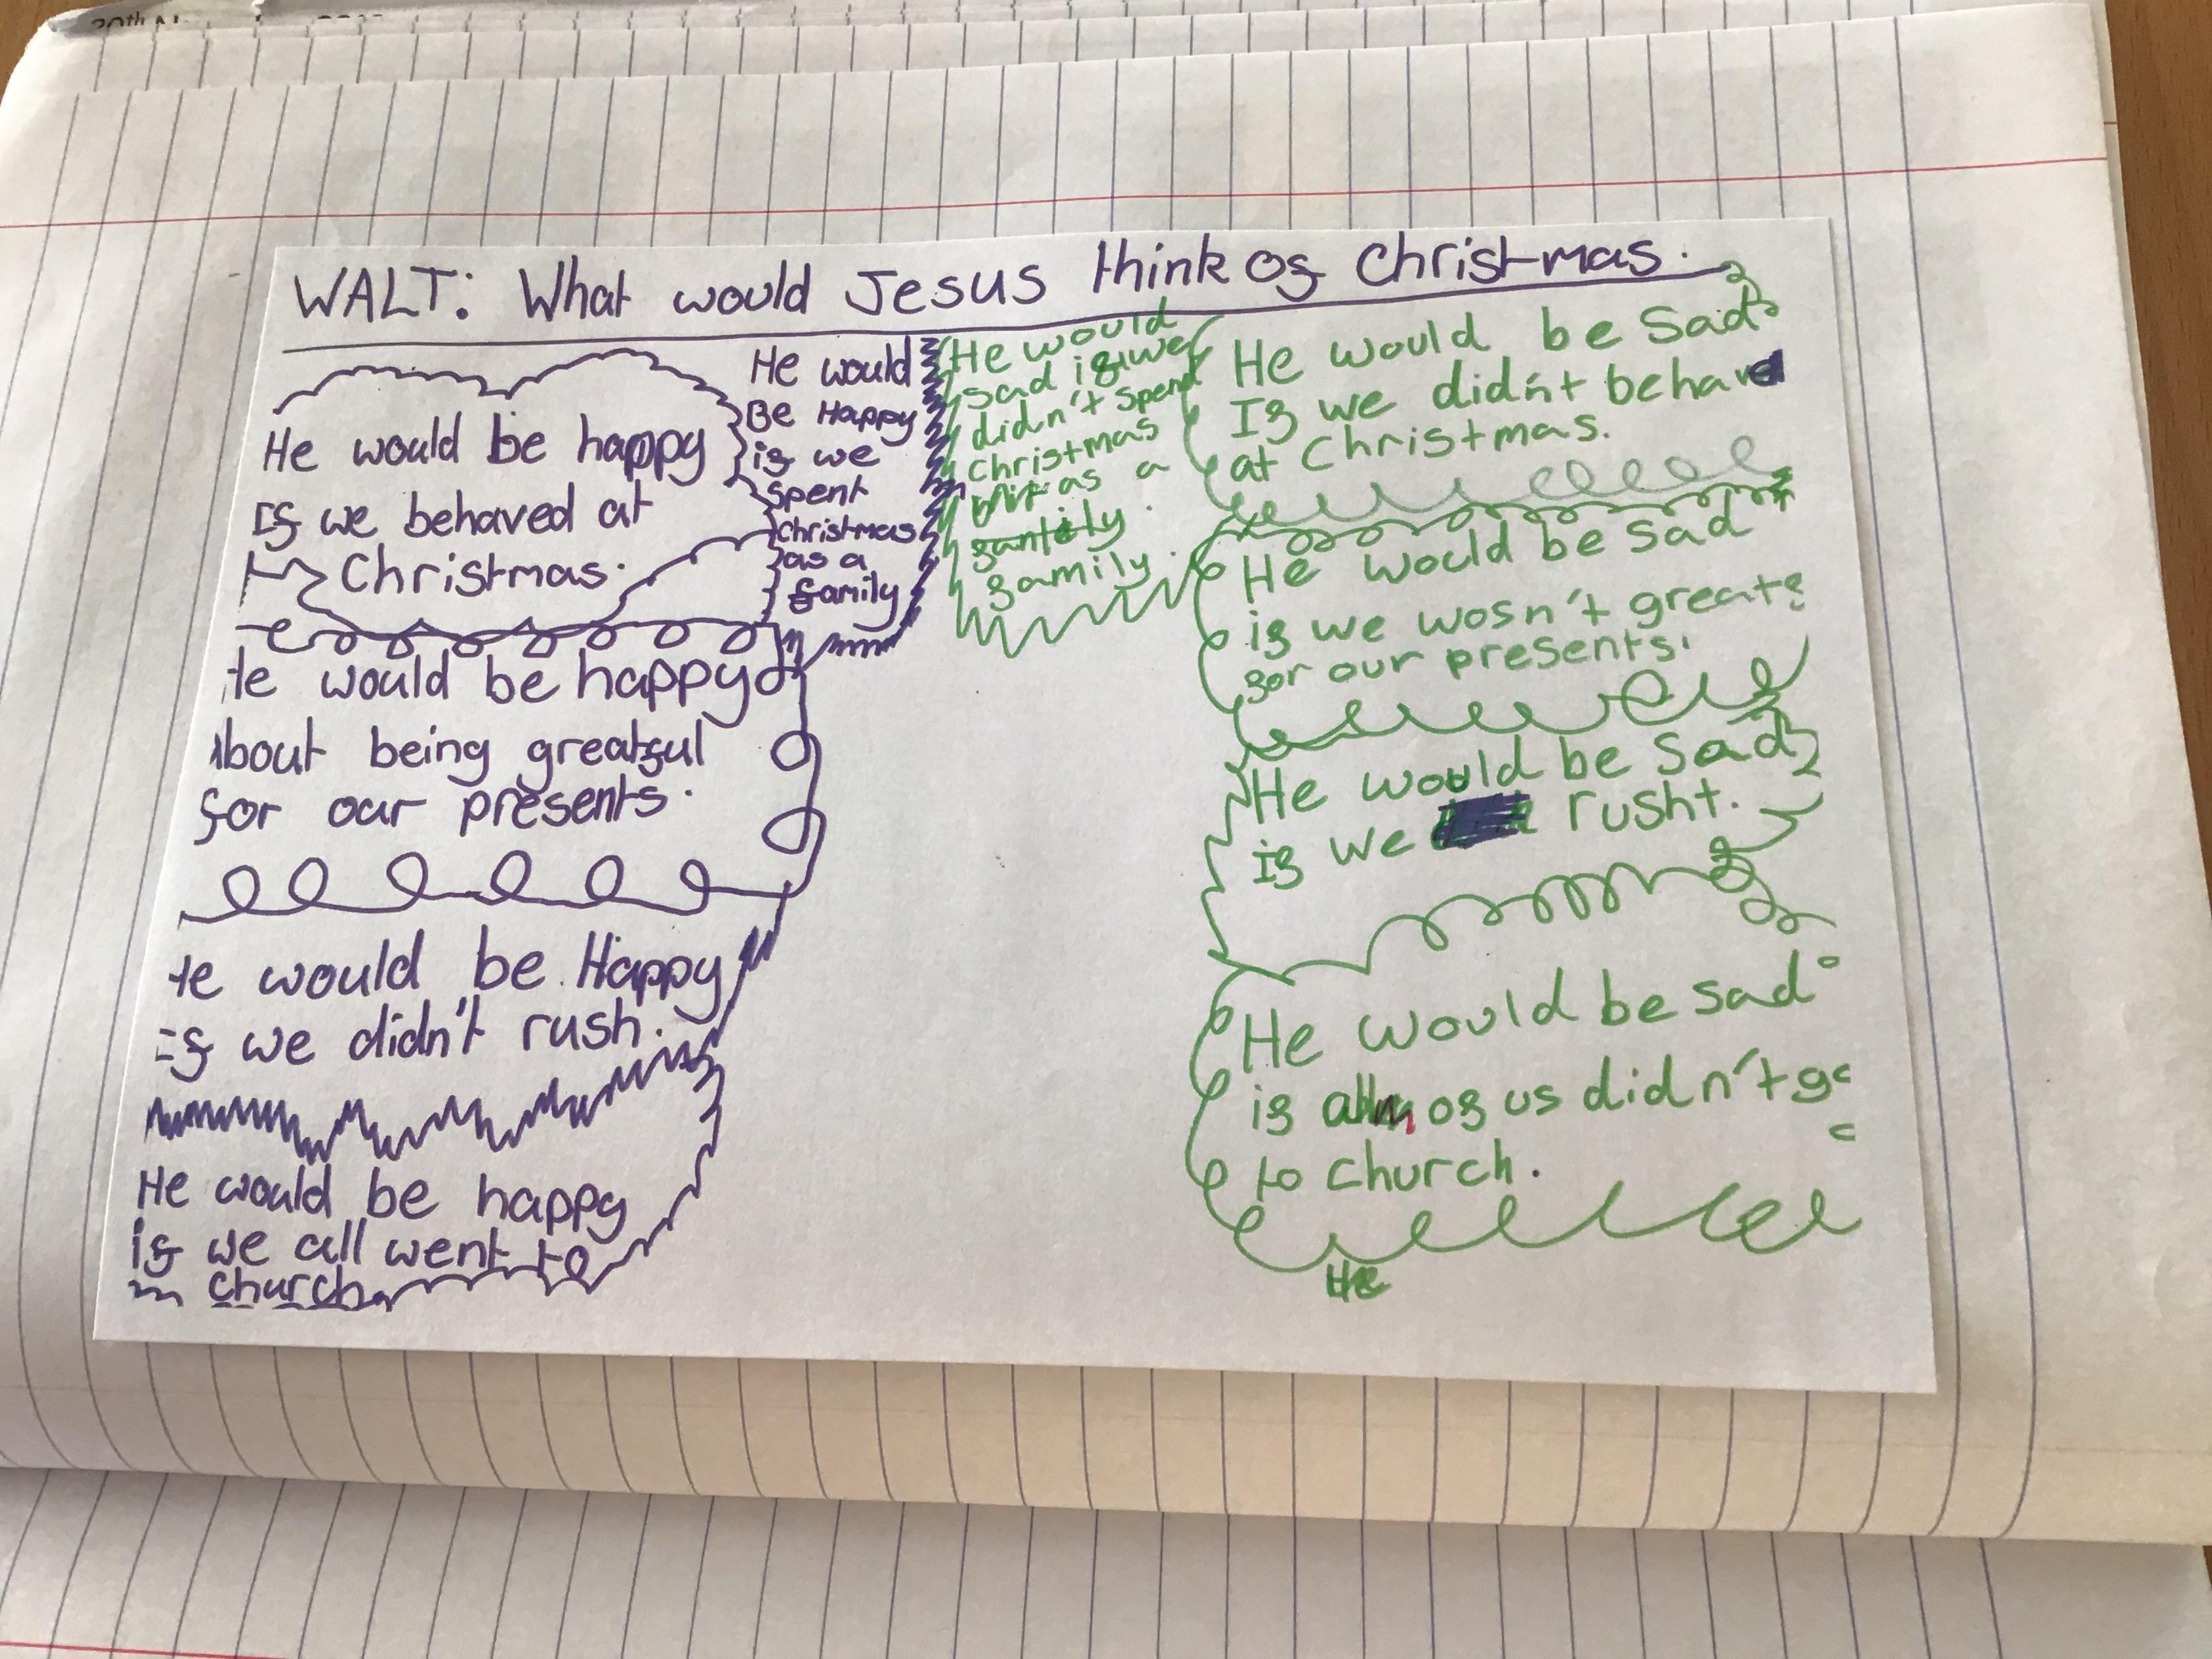 WALT: What would Jesus think of Christmas.
He would be happy
If we behaved at
Christmas.
He would
Be Happy
if we
spent
christmas
as a
family
He would be happy
About being greatful
for our presents.
He would be Happy
If we didn't rush.
He would be happy
if we all went to
church
He would
sad if we
didn't spend
christmas
as a
family.
He would be sad
If we didn't behave
at Christmas.
He would be sad
if we wosn't greatf
for our presents.
He would be sad
if we rusht.
He would be sad
if all of us didn't go
to church.
He